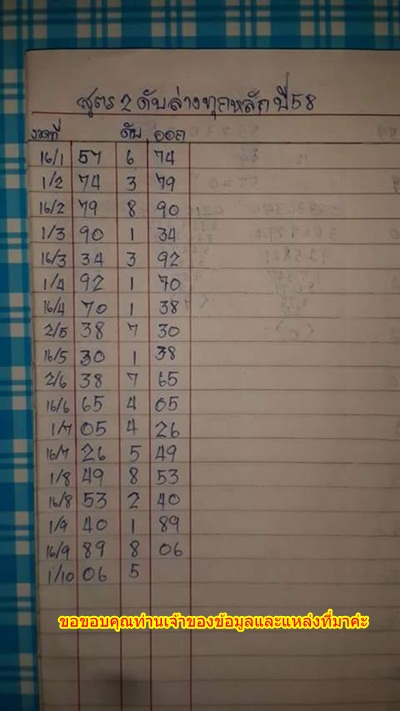 สูตร 2 ดับล่างทุกหลัก ปี 58
งวดที่ ดับ ออก
16/1 57 6 74
1/2 74 3 79
16/2 79 8 90
1/3 90 1 34
16/3 34 3 92
1/4 92 1 70
16/4 70 1 38
2/5 38 7 30
16/5 30 1 38
2/6 38 7 65
16/6 65 4 05
1/7 05 4 26
16/7 26 5 49
1/8 49 8 53
16/8 53 2 40
1/9 40 1 89
16/9 89 8 06
1/10 06 5
ขอขอบคุณท่านเจ้าของข้อมูลและแหล่งที่มาค่ะ